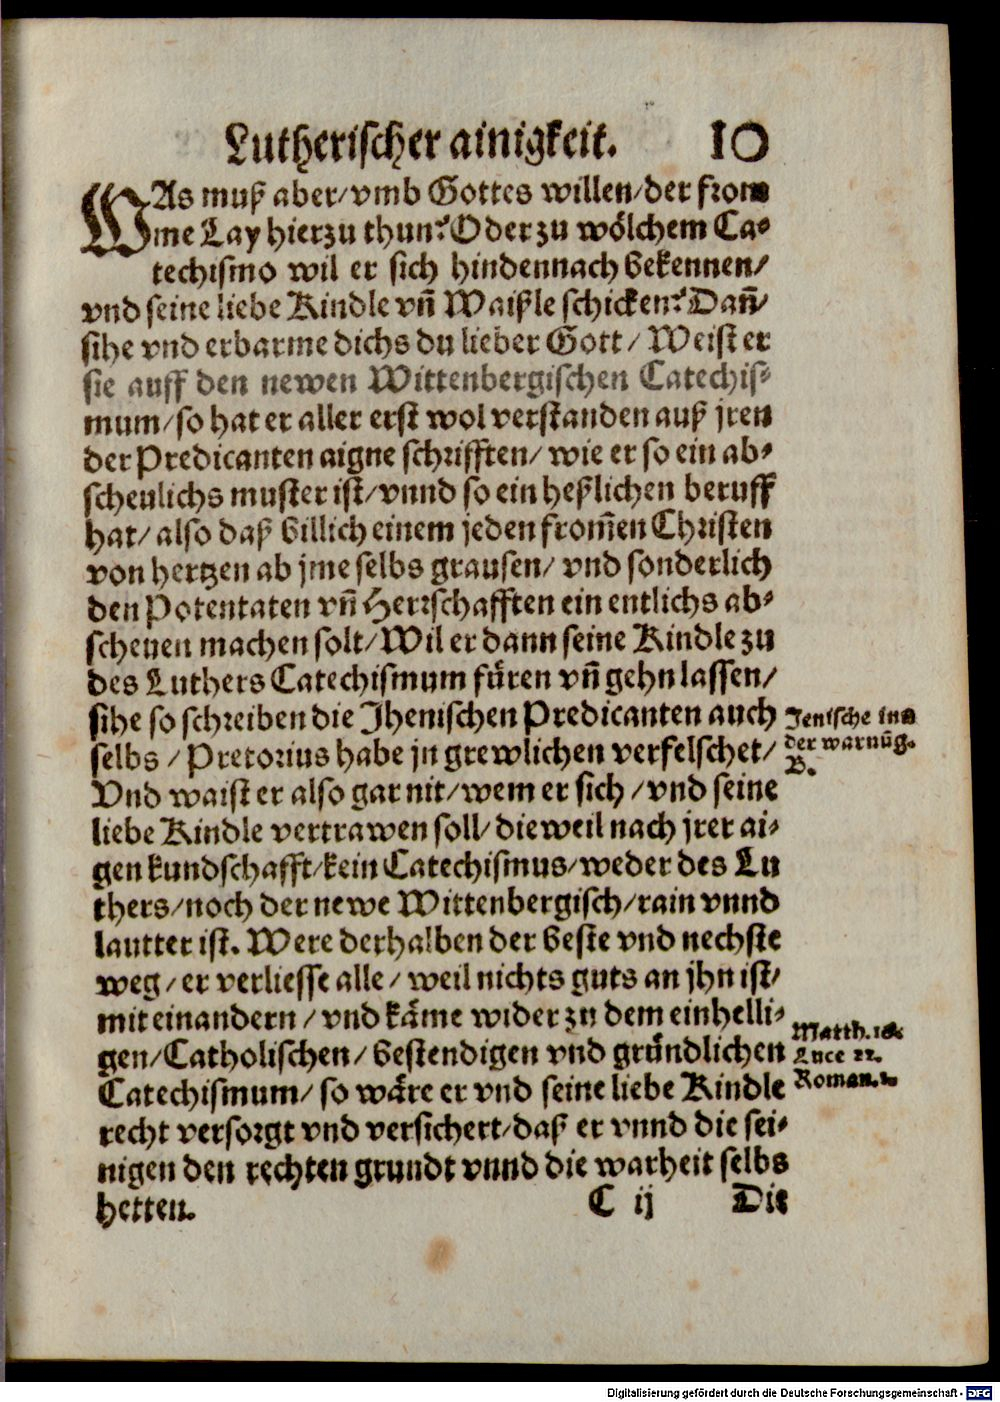 Lutherischer ainigkeit. 10
WAs muß aber/vmb Gottes willen/der from
me Lay hierzu thun? Oder zu wölchem Ca⸗
techismo wil er sich hindennach bekennen/
vnd seine liebe Kindle vñ Waißle schicken? Dañ/
sihe vnd erbarme dichs du lieber Gott/ Weist er
sie auff den newen Wittenbergischen Catechis⸗
mum/so hat er aller erst wol verstanden auß jren
der Predicanten aigne schrifften/ wie er so ein ab⸗
scheulichs muster ist/vnnd so ein heßlichen beruff
hat/ also daß billich einem jeden from̃en Christen
von hertzen ab jme selbs grausen/ vnd sonderlich
den Potentaten vñ Herrschafften ein entlichs ab⸗
scheuen machen solt/Wil er dann seine Kindle zu
des Luthers Catechismum füren vñ gehn lassen/
sihe so schreiben die Jhenischen Predicanten auch
selbs /Pretorius habe jn grewlichen verfelschet/
Vnd waist er also gar nit/wem er sich /vnd seine
liebe Kindle vertrawen soll/dieweil nach jrer ai⸗
gen kundschafft/kein Catechismus/weder des Lu
thers/noch der newe Wittenbergisch/rain vnnd
lautter ist. Were derhalben der beste vnd nechste
weg/er verliesse alle/ weil nichts guts an jhn ist/
mit einandern/vnd käme wider zu dem einhelli⸗
gen/Catholischen/bestendigen vnd gründlichen
Catechismum/ so wäre er vnd seine liebe Kindle
recht versorgt vnd versichert/daß er vnnd die sei⸗
nigen den rechten grundt vnnd die warheit selbs
hetten. C ij Die
Jenische inn
der warnũg.
B.
Matth. 18.
Luce 22.
Roman. 1.
Digitalisierung gefördert durch die Deutsche Forschungsgemeinschaft - DFG